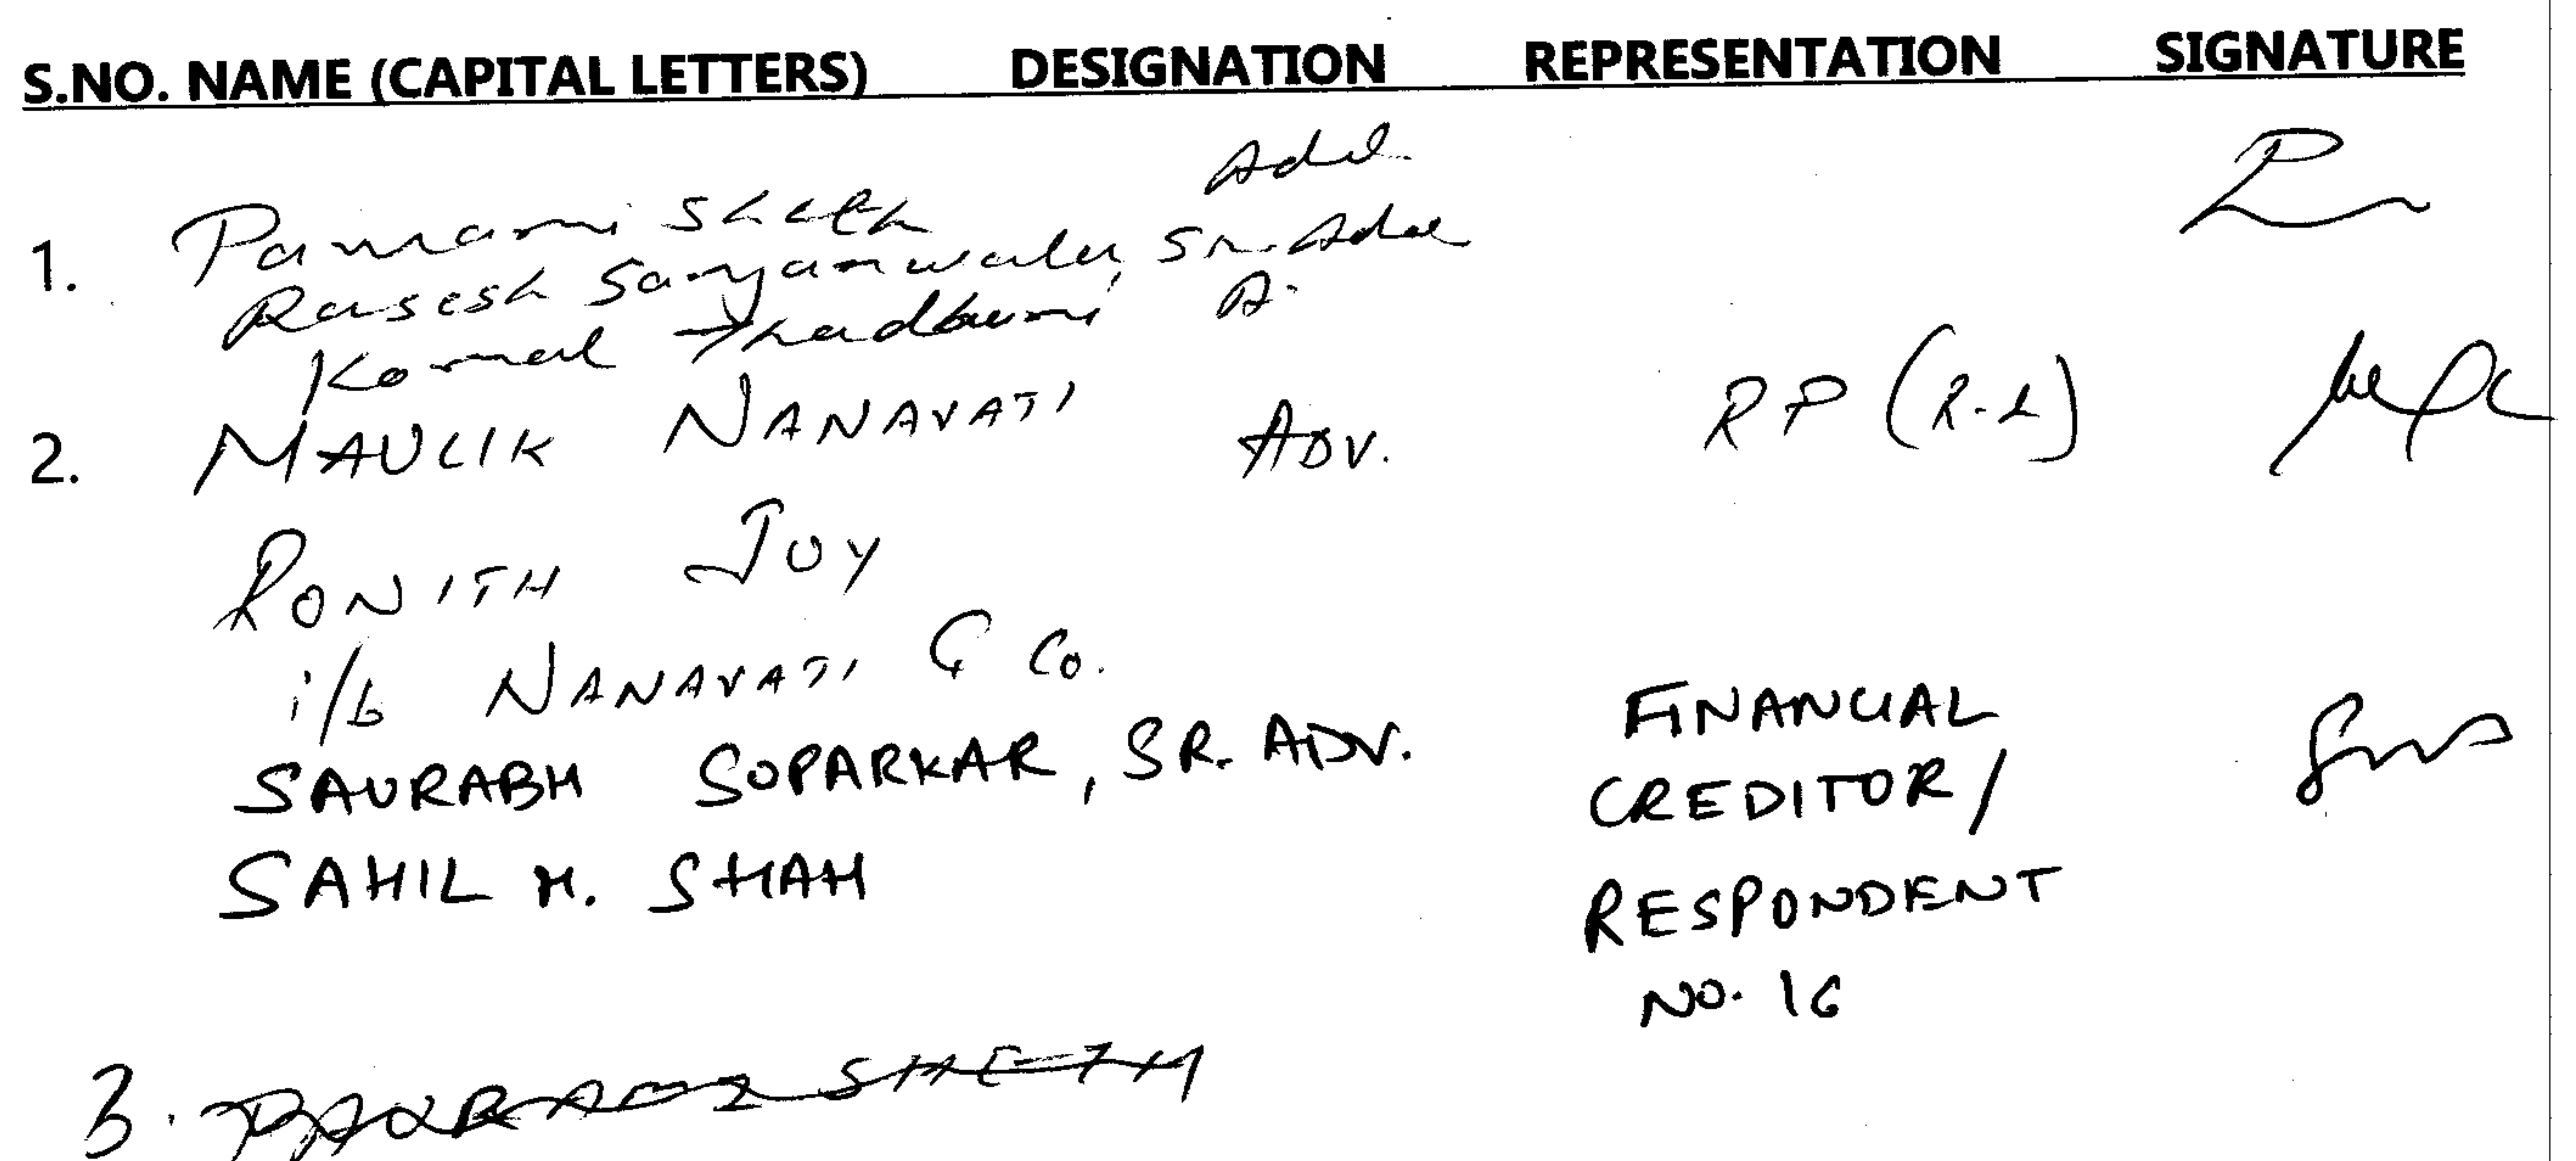 S.NO. NAME (CAPITAL LETTERS) DESIGNATION REPRESENTATION SIGNATURE
1. Sheth
Rasesh Sanjanwala, Sr. Adv
Komal
2. MAULIK NANAVATI ADV. RP (R-1)
RONITH JOY
i/b NANAVATI & Co.
SAURABH SOPARKAR, SR. ADV. FINANCIAL CREDITOR/
SAHIL M. SHAH RESPONDENT
NO. 16
3. SHETH